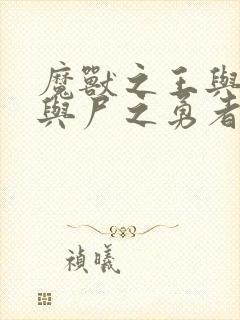 魔獸之王與
與尸之勇者
禎曦